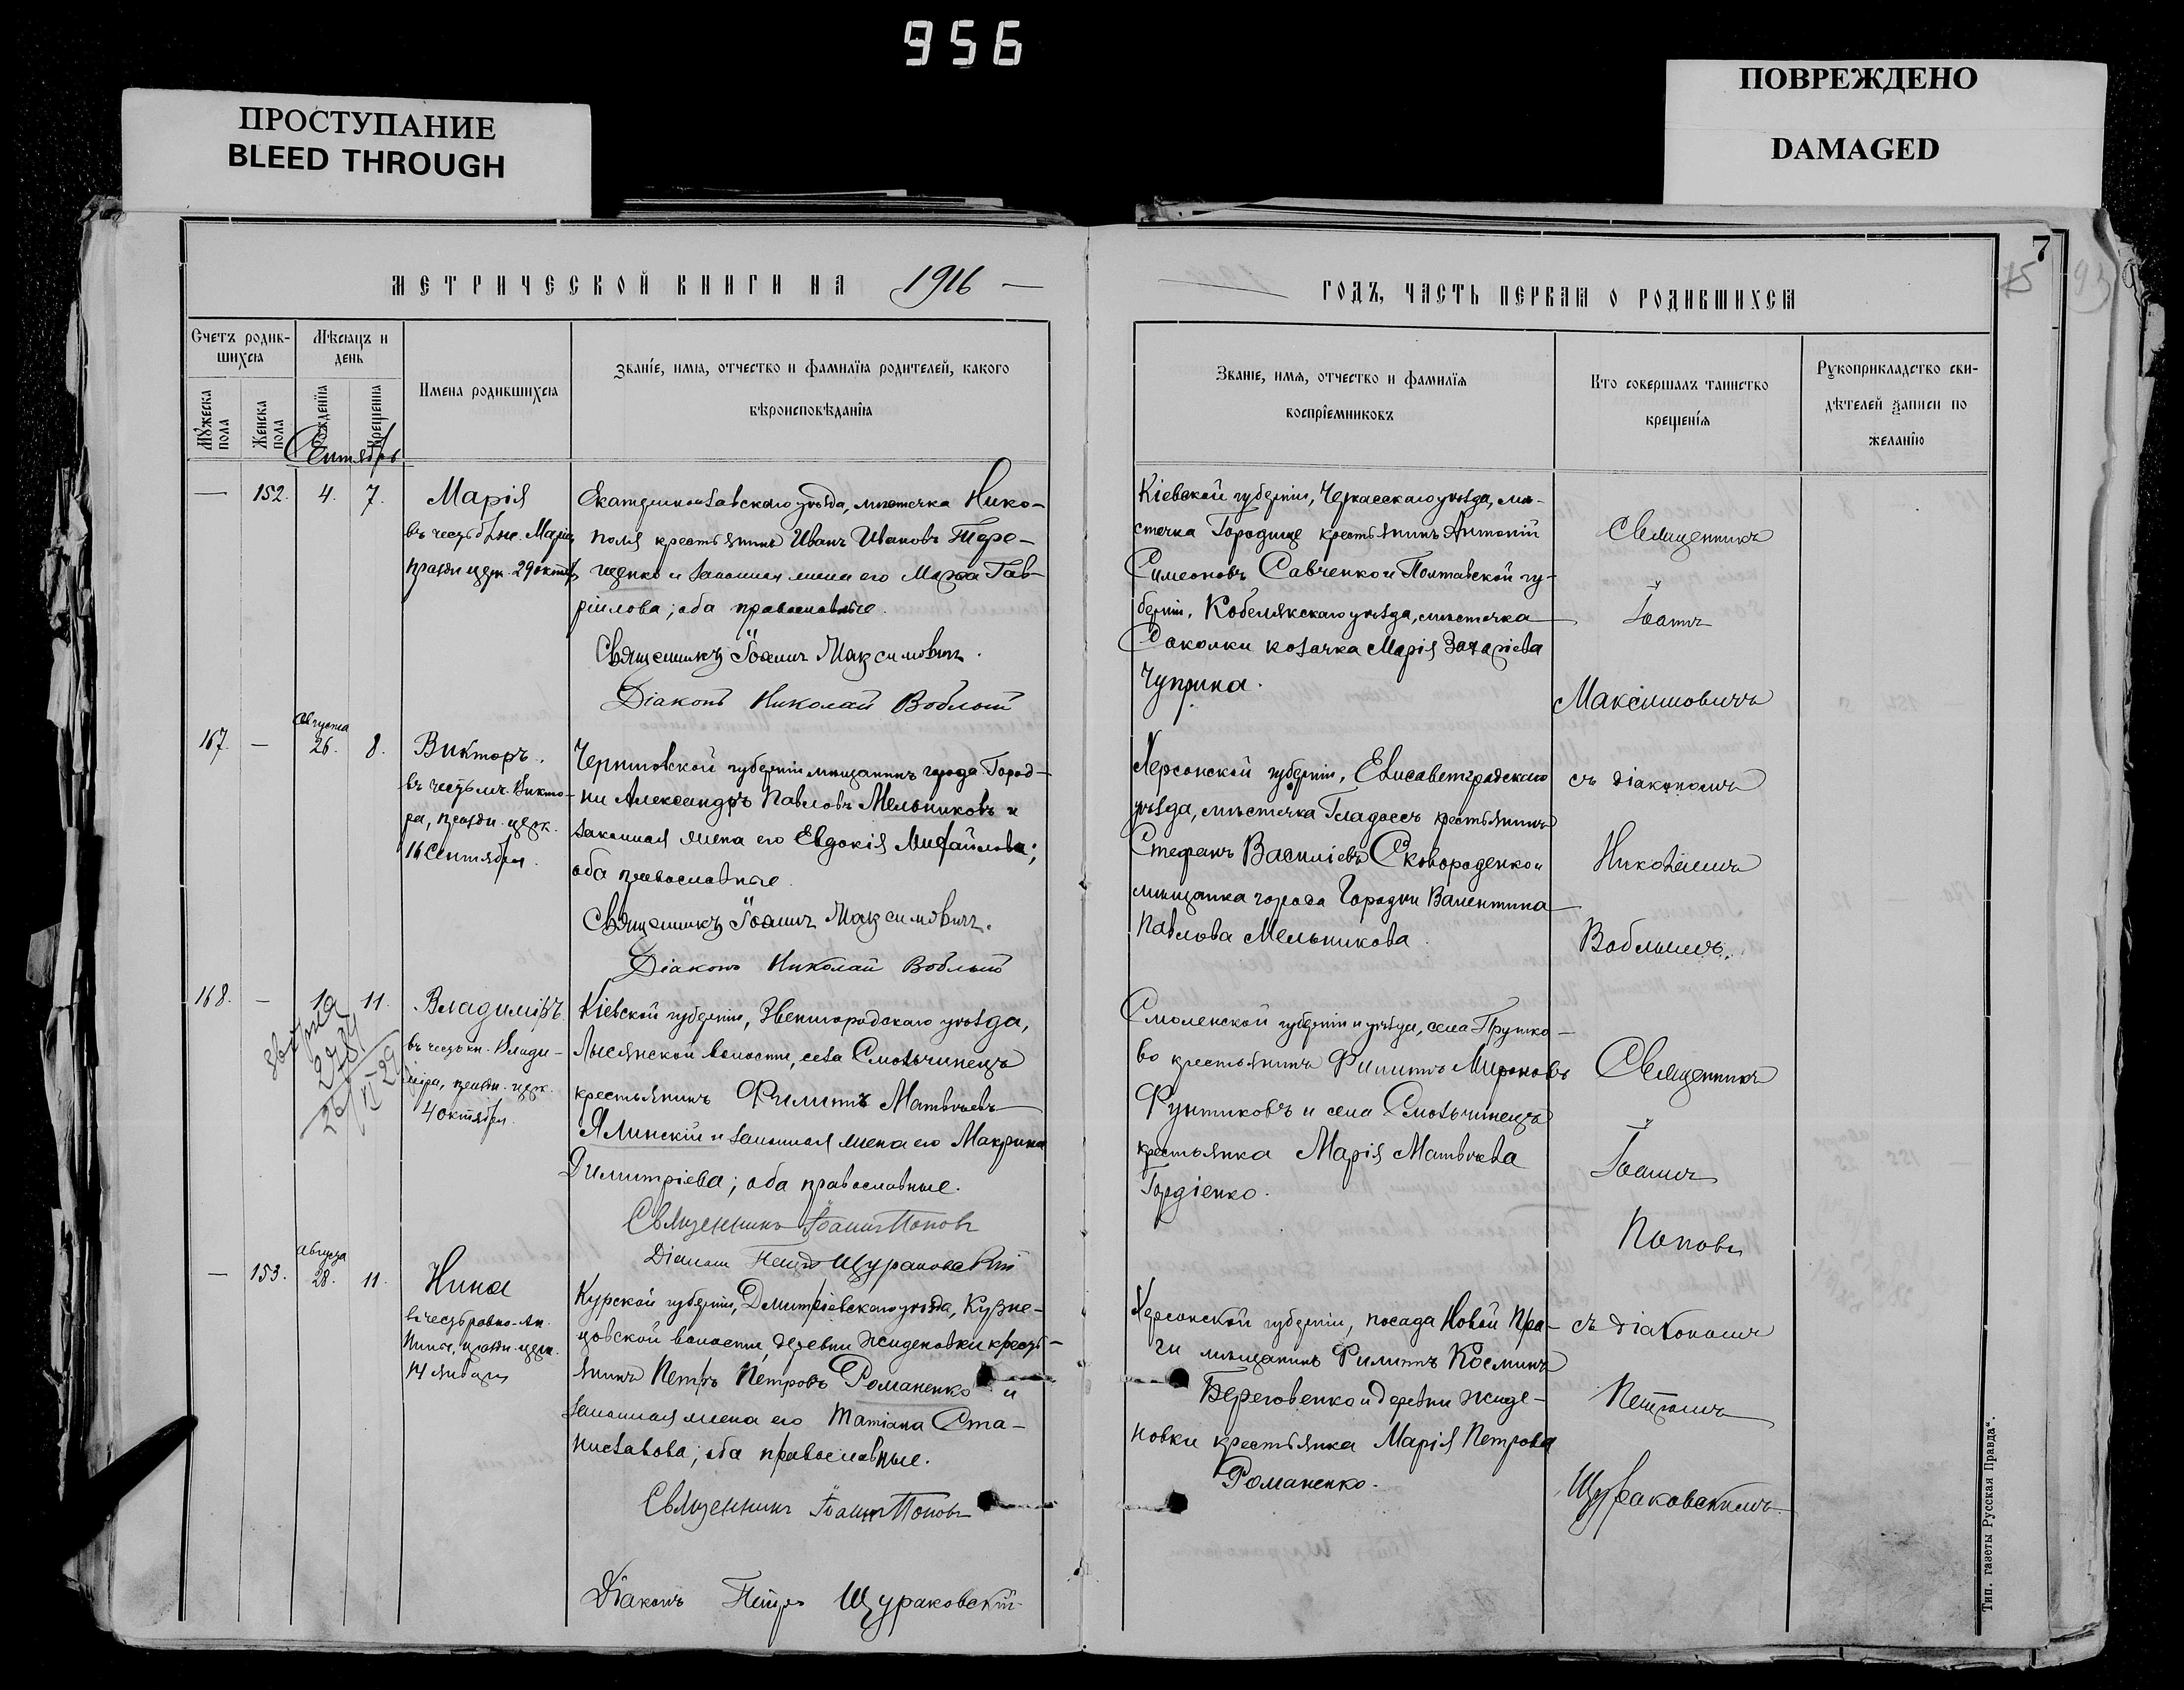 956
ПРОСТУПАНИЕ
BLEED THROUGH
ПОВРЕЖДЕНО
DAMAGED
7
75
93
МЕТРИЧЕСКОЙ КНИГИ НА 1916
ГОДЪ, ЧАСТЬ ПЕРВАЯ О РОДИВШИХСЯ
Счетъ родив-
шихся
Мѣсяцъ и
день
Имена родившихся
Званіе, имя, отчество и фамилія родителей, какого
вѣроисповѣданія
Мужеска
пола
Женска
пола
Рожденія
Крещенія
Званіе, имя, отчество и фамилія
воспріемниковъ
Кто совершалъ таинство
крещенія
Рукоприкладство сви-
дѣтелей записи по
желанію
Сентябрь
— 152. 4. 7.
Марія
въ честь Марія
праздн. церк. 29 октяб
Екатеринославскаго уѣзда, мѣстечка Нико-
поля крестьянинъ Иванъ Ивановъ Тере-
щенко и законная жена его Марѳа Гав-
ріилова; оба православные.
Священникъ Іоаннъ Максимовичъ.
Діаконъ Николай Воблый
Кіевской губерніи, Черкасскаго уѣзда, мѣ-
стечка Городище крестьянинъ Антоній
Симеоновъ Савченко и Полтавской гу-
берніи, Кобелякскаго уѣзда, мѣстечка
Соколки козачка Марія Захаріева
Чуприна.
Священникъ
Іоаннъ
Максимовичъ
167. — Августа 26. 8.
Викторъ.
въ честь мч. Викто-
ра, праздн. церк.
16 Сентября.
Черниговской губерніи мѣщанинъ города Город-
ни Александръ Павловъ Мельниковъ и
законная жена его Евдокія Михайлова;
оба православные.
Священникъ Іоаннъ Максимовичъ.
Діаконъ Николай Воблый
Херсонской губерніи, Елисаветградскаго
уѣзда, мѣстечка Гладоссъ крестьянинъ
Стефанъ Василіевъ Сковороденко и
мѣщанка города Городни Валентина
Павлова Мельникова.
съ діакономъ
Николаемъ
Воблымъ.
168. — 11.
Владиміръ.
въ честь кн. Влади-
міра, праздн. церк.
4 октября.
Кіевской губерніи, Звенигородскаго уѣзда,
Лысянской волости, села Смольчинецъ
крестьянинъ Филиппъ Матвѣевъ
Ялинскій и законная жена его Макрина
Димитріева; оба православные.
Священникъ Іоаннъ Поповъ
Діаконъ Петръ Щураковскій
Смоленской губерніи и уѣзда, села Прутко-
во крестьянинъ Филиппъ Мироновъ
Фунтиковъ и села Смольчинецъ
крестьянка Марія Матвѣева
Гордіенко.
Священникъ
Іоаннъ
Поповъ
— 153. Августа 28. 11.
Нина
въ честь равно-Ап.
Нины, праздн. церк.
14 января
Курской губерніи, Дмитріевскаго уѣзда, Кузне-
цовской волости, деревни Жиденовки кресть-
янинъ Петръ Петровъ Романенко и
законная жена его Татіана Ста-
ниславова; оба православные.
Священникъ Іоаннъ Поповъ
Діаконъ Петръ Щураковскій
Херсонской губерніи, посада Новой Пра-
ги мѣщанинъ Филиппъ Косминъ
Береговенко и деревни Жиде-
новки крестьянка Марія Петрова
Романенко.
съ діакономъ
Петромъ
Щураковскимъ.
Тип. газеты Русская Правда".